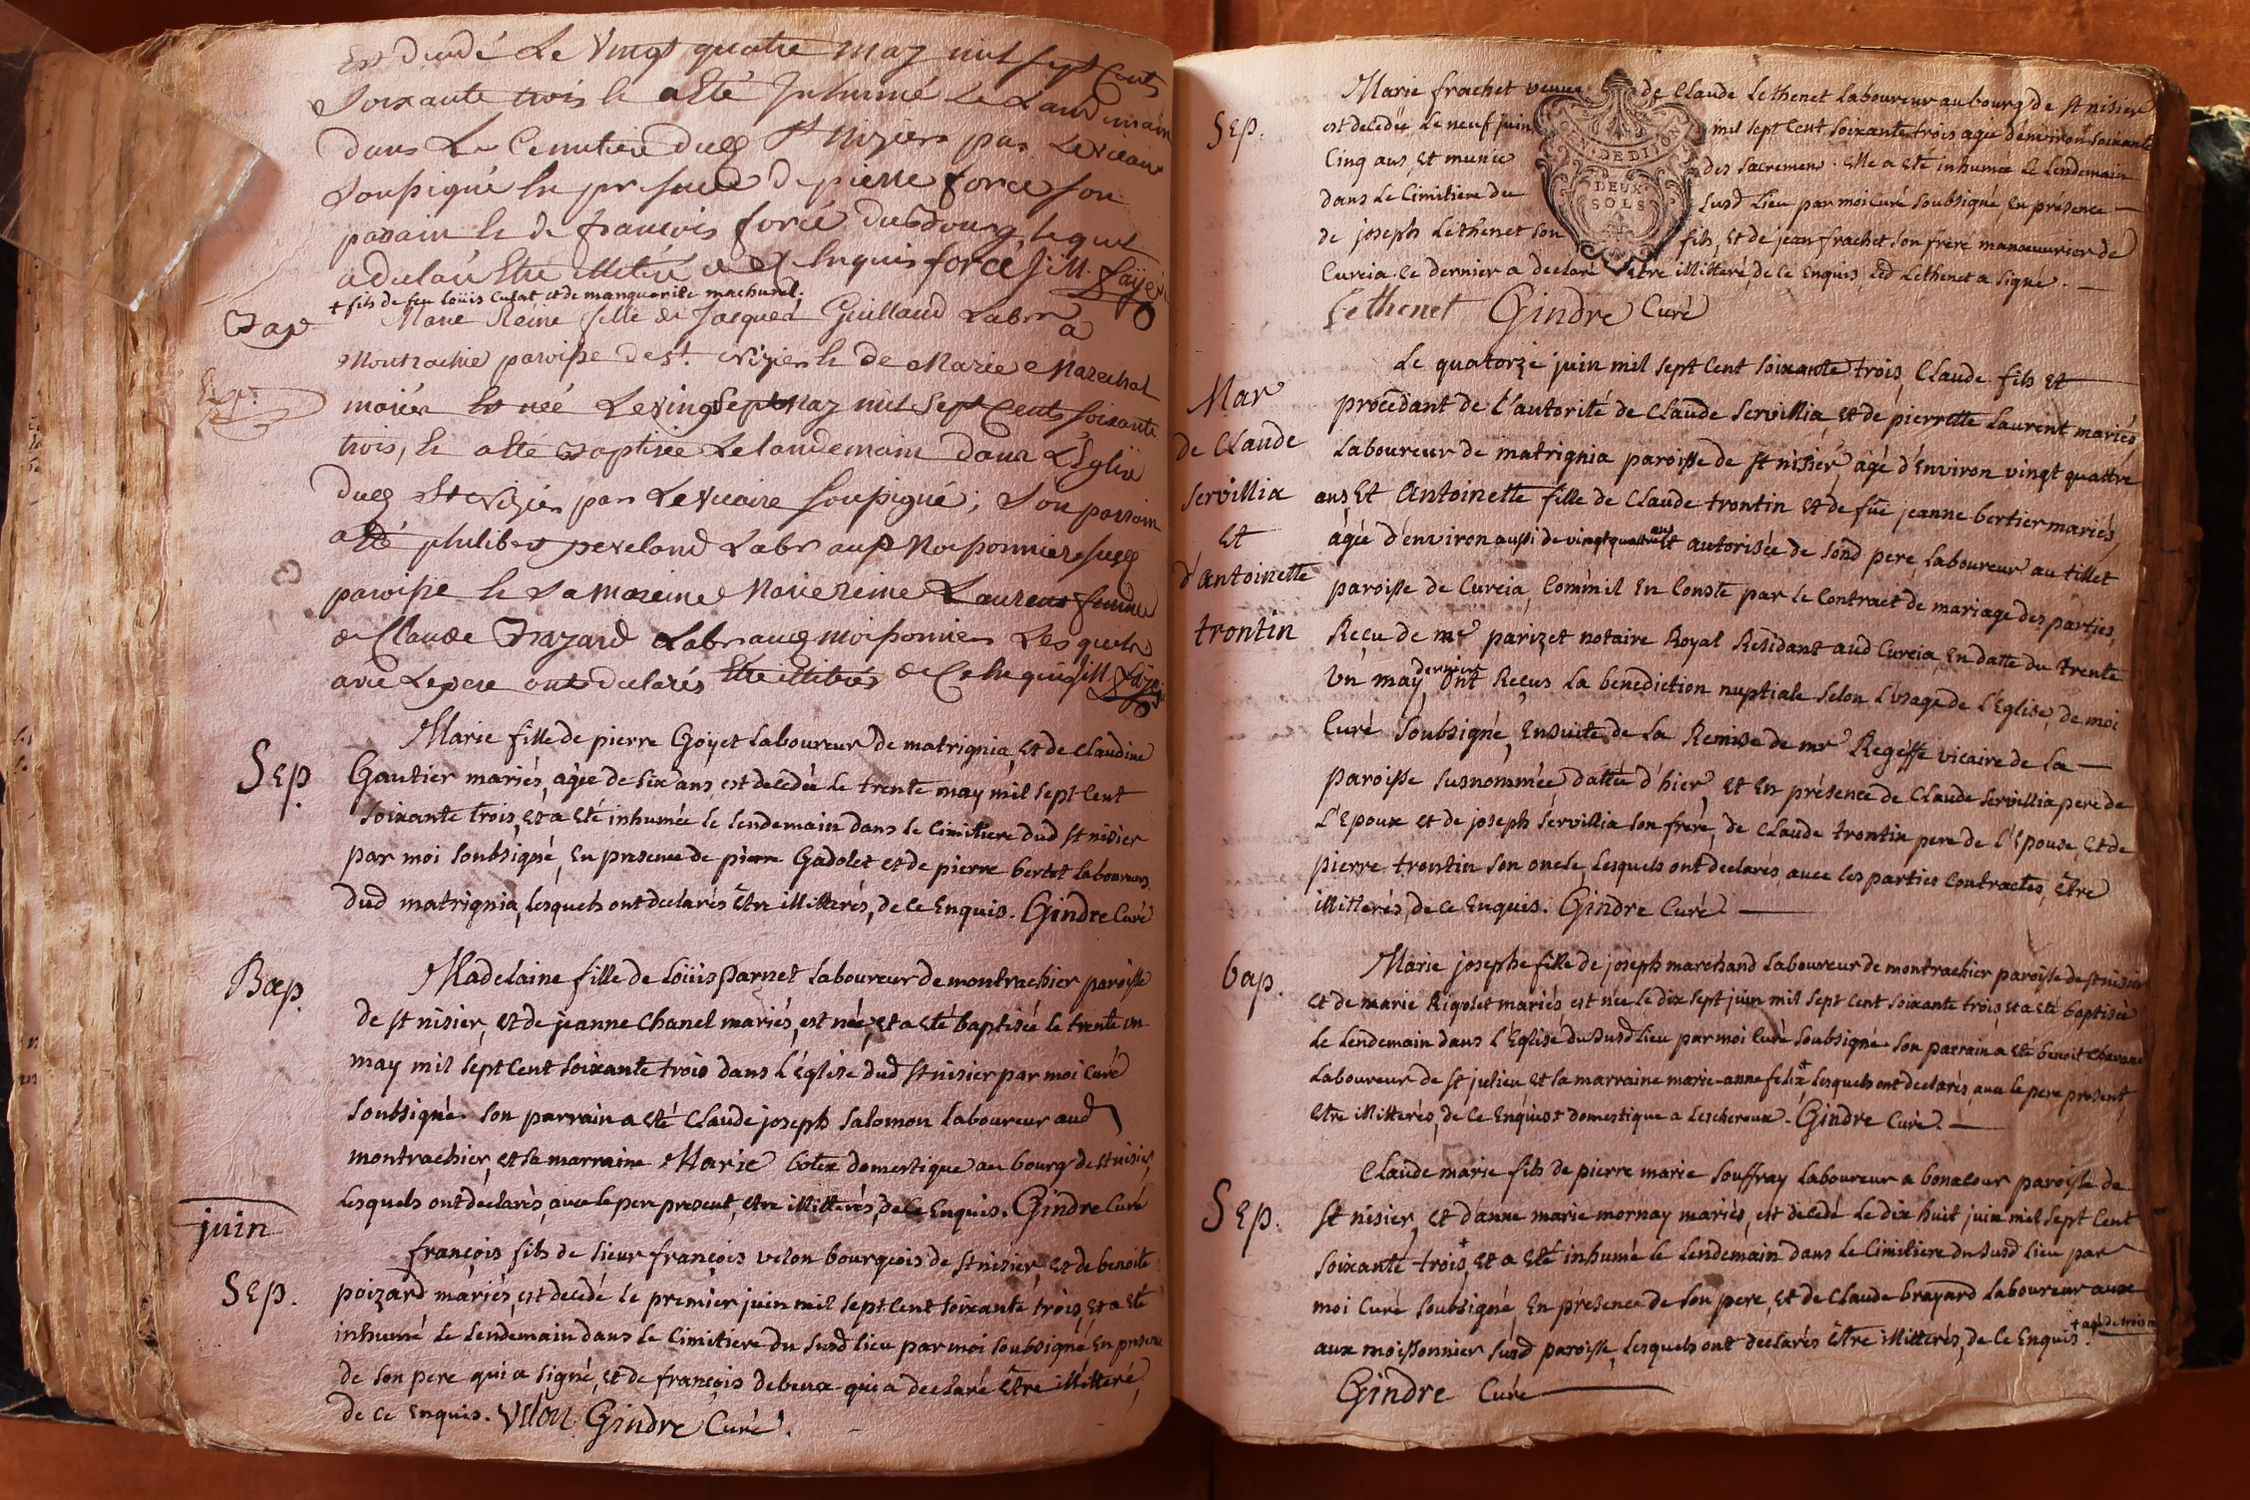 est decedé le vingt quatre may mil sept cents
soixante trois et a esté inhumé le landemain
dans le cemetiere dudt St nizier par le vicaire
soussigné en presence de pierre force son
parain et de francois force du bourg, lequel
a declaré etre illitéré de ce enquis force Sill.
+ fils de feu loüis culat et de marguerite machurel.
Bap Marie Reine fille de Jacques Guillaud labr a
Montrachié paroisse de St. Nizier et de Marie Marechal
mariés est née le vingt sept may mil sept cents soixante
trois, et a esté baptisée le landemain dans l'Eglise
dudt St Nizier par le vicaire soussigné; son parrain
a esté philibert peveland labr aux Moissonniers susdt
paroisse et sa mareine Marie reine Laurent femme
de Claude Brazard labr auxdt moissonniers lesquels
avec le pere ont declarés etre illitérés de ce enquis
Sep. Marie fille de pierre Goÿet laboureur de matrignia, et de claudine
Gautier mariés, agée de six ans, est decedée le trente may mil sept cent
soixante trois, et a eté inhumée le lendemain dans le cimitiere dud st nisier
par moi soubsigné, en presence de pierre Gadolet et de pierre bertet laboureurs
dud matrignia, lesquels ont declarés être illitterés, de ce enquis. Gindre Curé
Bap. Madelaine fille de loüis parnet laboureur de montrachier paroisse
de st nisier, et de jeanne chanel mariés, est née, et a eté baptisée le trente un
may mil sept cent soixante trois dans l'église dud st nisier par moi curé
soubsigné. son parrain a eté claude joseph salomon laboureur aud
montrachier, et sa marraine Marie botex domestique au bourg de st nisier,
lesquels ont déclarés, avec le pere present, etre illitterés, de ce enquis. Gindre Curé
juin
Sep. françois fils de sieur françois velon bourgeois de st nisier, et de benoite
poizard mariés, est decedé le premier juin mil sept cent soixante trois, et a eté
inhumé le lendemain dans le cimitiere du susd lieu par moi soubsigné en presence
de son pere qui a signé, et de françois debeux qui a declaré être illitteré,
de ce enquis. Velon Gindre Curé.
Sep. Marie frachet veuve de claude Lethenet laboureur au bourg de st nisier
est decedée le neuf juin mil sept cent soixante trois agée d'environ soixante
Cinq ans, et munie des sacremens. elle a eté inhumée le lendemain
GÑ. DE DIJON
DEUX
SOLS
dans le cimitiere du susd lieu par moi curé soubsigné, en présence
de joseph Lethenet son fils, et de jean frachet son frere manoeuvrier de
Cureia. ce dernier a declaré être illitteré, de ce enquis, led Lethenet a signé.
Lethenet Gindre Curé
Mar
de Claude
servillia
et
d'antoinette
trontin
Le quatorze juin mil sept cent soixante trois, Claude fils et
procédant de l'autorité de claude servillia, et de pierrette laurent mariés,
laboureur de matrignia paroisse de st nisier, âgé d'environ vingt quattre
ans, et antoinette fille de claude trontin et de füe jeanne bertier mariés,
âgée d'environ aussi de vingt quattre ans et autorisée de sond pere, laboureur au tillet
paroisse de Cureia, comm'il en conste par le contract de mariage des parties,
Reçu de me parizet notaire Royal Résidant aud Cureia, en datte du trente
un may dernier ont Reçus la benediction nuptiale selon l'usage de l'Eglise, de moi
curé soubsigné, ensuite de la Remise de mr Regeffe vicaire de la
paroisse susnommée dattée d'hier, et en présence de claude servillia pere de
l'epoux et de joseph servillia son frére, de claude trontin pere de l'épouse, et de
pierre trontin son oncle, lesquels ont declarés, avec les parties contractes, être
illitterés, de ce enquis. Gindre Curé
bap. Marie josephe fille de joseph marchand laboureur de montrachier paroisse de st nisier
et de marie Rigolet mariés est née le dix sept juin mil sept cent soixante trois, et a eté baptisée
le lendemain dans l'Eglise du susd lieu par moi curé soubsigné. son parrain a eté benoit chavane
laboureur de st julien et sa marraine marie-anne felix,+ lesquels ont declarés, avec le pere present,
être illitterés, de ce enquis + domestique a lescheroux. Gindre Curé.
Sep. Claude marie fils de pierre marie souffray laboureur a bonacour paroisse de
st nisier, et d'anne marie mornay mariés, est décédé le dix huit juin mil sept cent
soixante trois,+ et a eté inhumé le lendemain dans le cimitiere du susd lieu par
moi curé soubsigné, en présence de son pere, et de claude brayard laboureur aux
+ agé de trois
aux moissonnier susd paroisse, lesquels ont declarés être illitterés, de ce enquis.
Gindre Curé